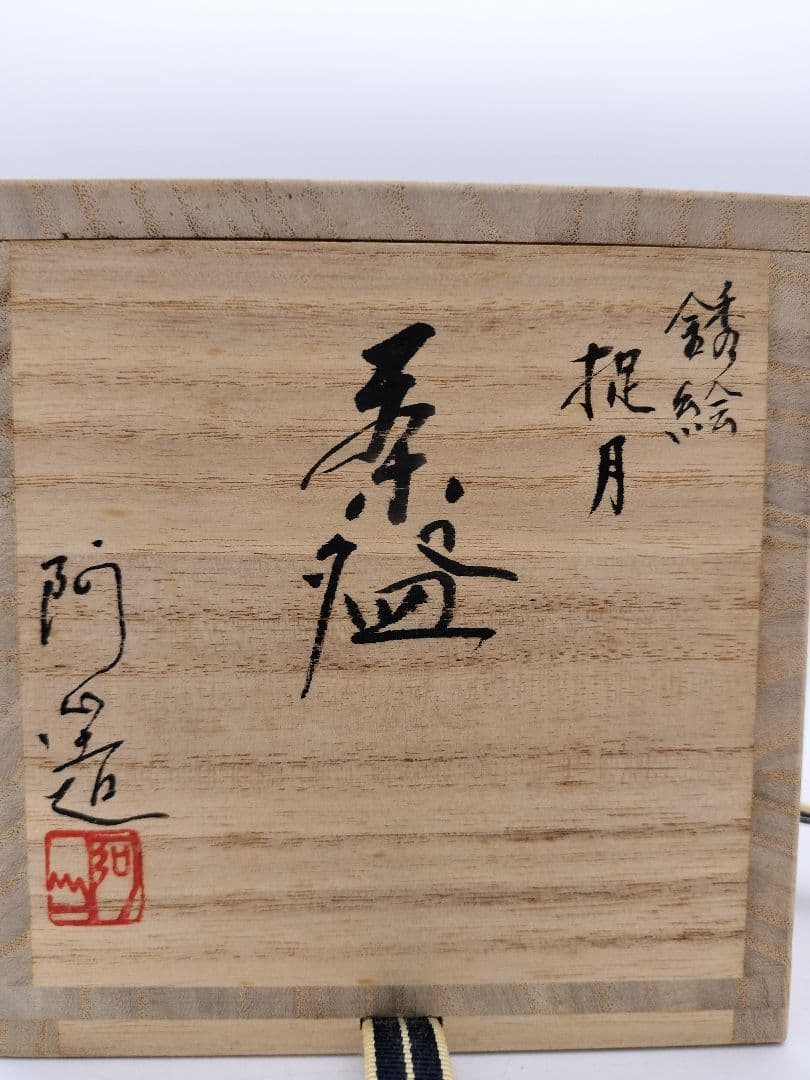 銹絵
捉月
茶盌
阿山造
阿山